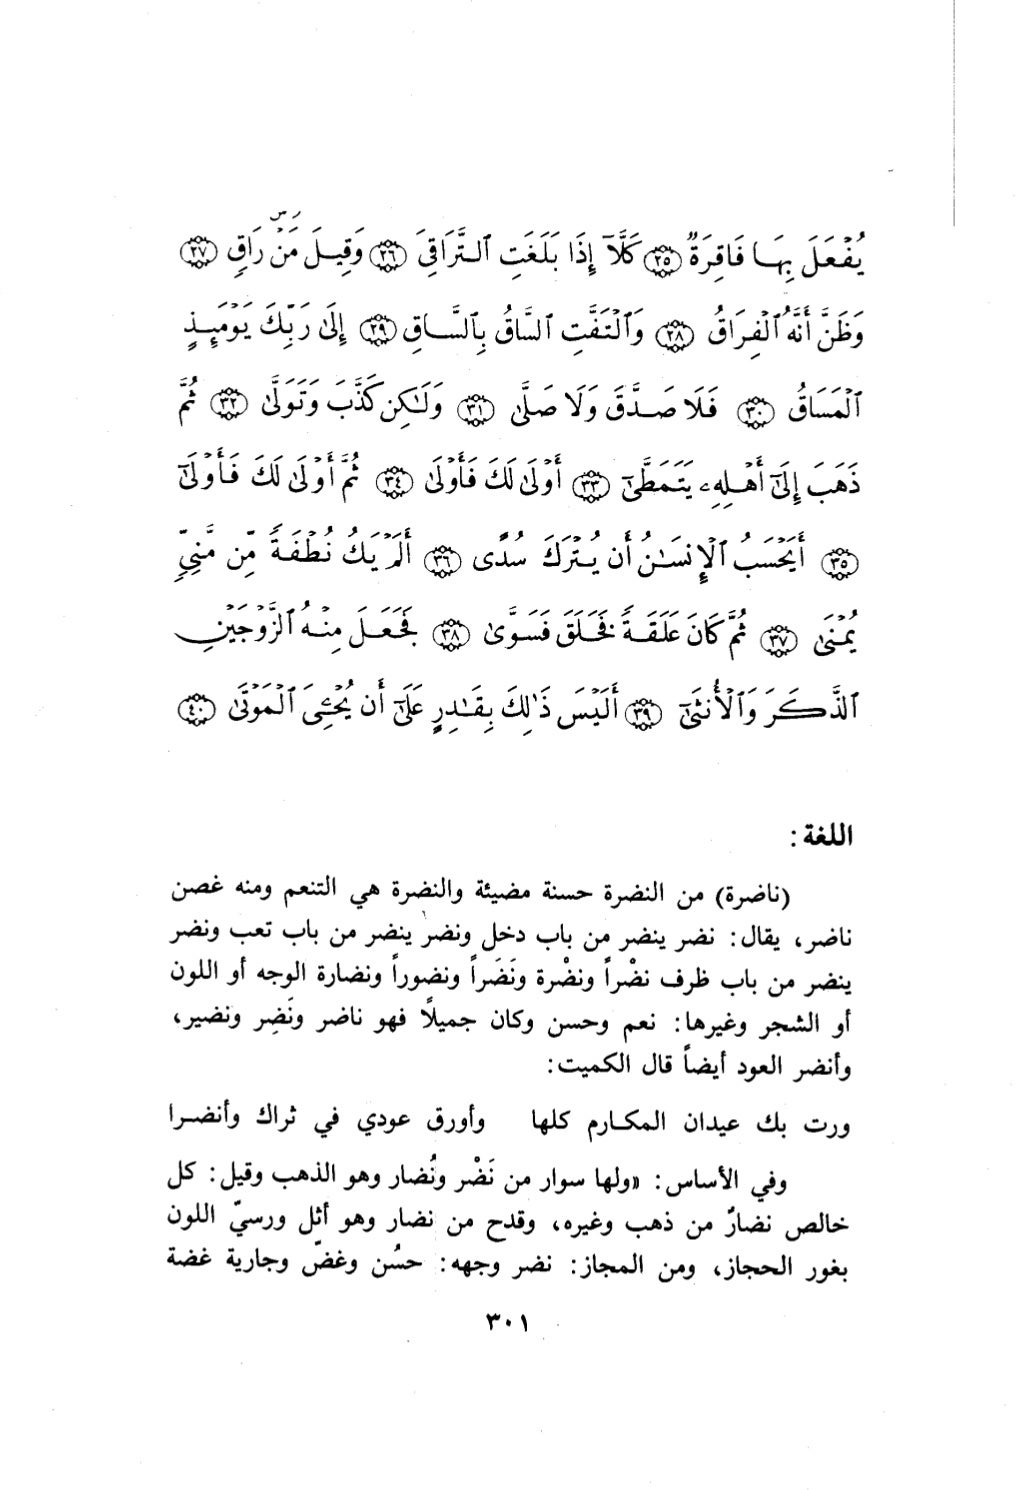 يُفْعَلَ بِهَا فَاقِرَةٌ ٢٥ كَلَّآ إِذَا بَلَغَتِ ٱلتَّرَاقِىَ ٢٦ وَقِيلَ مَنْ ۜ رَاقٍ ٢٧
وَظَنَّ أَنَّهُ ٱلْفِرَاقُ ٢٨ وَٱلْتَفَّتِ ٱلسَّاقُ بِٱلسَّاقِ ٢٩ إِلَىٰ رَبِّكَ يَوْمَئِذٍ
ٱلْمَسَاقُ ٣٠ فَلَا صَدَّقَ وَلَا صَلَّىٰ ٣١ وَلَٰكِن كَذَّبَ وَتَوَلَّىٰ ٣٢ ثُمَّ
ذَهَبَ إِلَىٰٓ أَهْلِهِۦ يَتَمَطَّىٰٓ ٣٣ أَوْلَىٰ لَكَ فَأَوْلَىٰ ٣٤ ثُمَّ أَوْلَىٰ لَكَ فَأَوْلَىٰٓ
٣٥ أَيَحْسَبُ ٱلْإِنسَٰنُ أَن يُتْرَكَ سُدًى ٣٦ أَلَمْ يَكُ نُطْفَةً مِّن مَّنِىٍّ
يُمْنَىٰ ٣٧ ثُمَّ كَانَ عَلَقَةً فَخَلَقَ فَسَوَّىٰ ٣٨ فَجَعَلَ مِنْهُ ٱلزَّوْجَيْنِ
ٱلذَّكَرَ وَٱلْأُنثَىٰٓ ٣٩ أَلَيْسَ ذَٰلِكَ بِقَٰدِرٍ عَلَىٰٓ أَن يُحْـِۧىَ ٱلْمَوْتَىٰ ٤٠
اللغة :
(ناضرة) من النضرة حسنة مضيئة والنضرة هي التنعم ومنه غصن
ناضر، يقال: نضر ينضر من باب دخل ونضر ينضر من باب تعب ونضر
ينضر من باب ظرف نضْراً ونضْرة ونَضَراً ونضوراً ونضارة الوجه أو اللون
أو الشجر وغيرها: نعم وحسن وكان جميلًا فهو ناضر ونَضِر ونضير،
وأنضر العود أيضاً قال الكميت:
ورت بك عيدان المكارم كلها وأورق عودي في ثراك وأنضرا
وفي الأساس: «ولها سوار من نَضْر ونُضار وهو الذهب وقيل: كل
خالص نضارٌ من ذهب وغيره، وقدح من نضار وهو أثل ورسيّ اللون
بغور الحجاز، ومن المجاز: نضر وجهه: حسُن وغضّ وجارية غضة
٣٠١